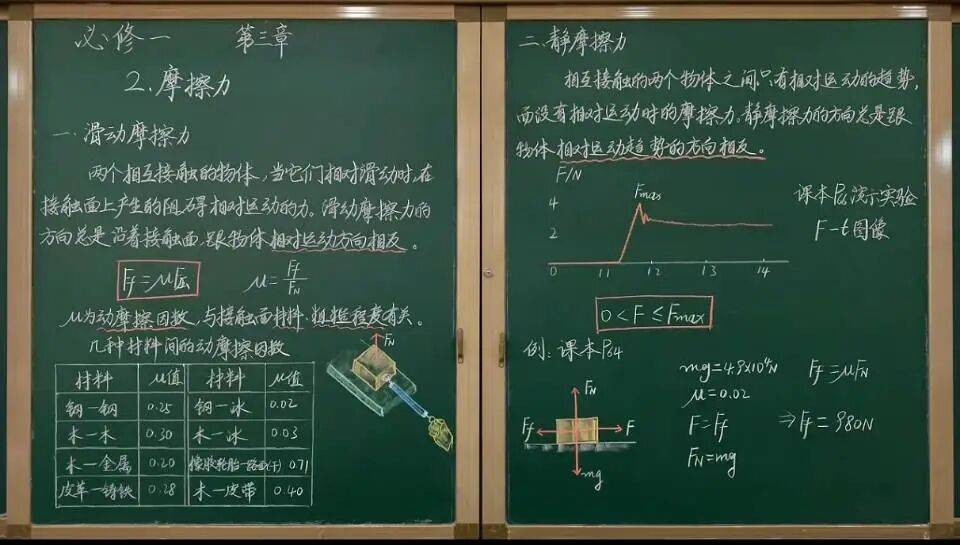 必修一 第三章
2.摩擦力
一.滑动摩擦力
两个相互接触的物体,当它们相对滑动时,在
接触面上产生的阻碍相对运动的力。滑动摩擦力的
方向总是沿着接触面,跟物体相对运动方向相反。
Ff=μF压 μ=Ff/FN
μ为动摩擦因数,与接触面材料.粗糙程度有关。
几种材料间的动摩擦因数
材料 μ值 材料 μ值
钢一钢 0.25 钢一冰 0.02
木一木 0.30 木一冰 0.03
木一金属 0.20 橡胶轮胎一路面(干) 0.71
皮革一铸铁 0.28 木一皮带 0.40
FN
二.静摩擦力
相互接触的两个物体之间只有相对运动的趋势,
而没有相对运动时的摩擦力。静摩擦力的方向总是跟
物体相对运动趋势的方向相反。
F/N
4 Fmax
2
0 11 12 13 14 t
课本 演示实验
F-t图像
0<F≤Fmax
例:课本P64
FN
Ff F
mg
mg=4.9×10⁴N Ff=μFN
μ=0.02
F=Ff ⇒Ff=980N
FN=mg